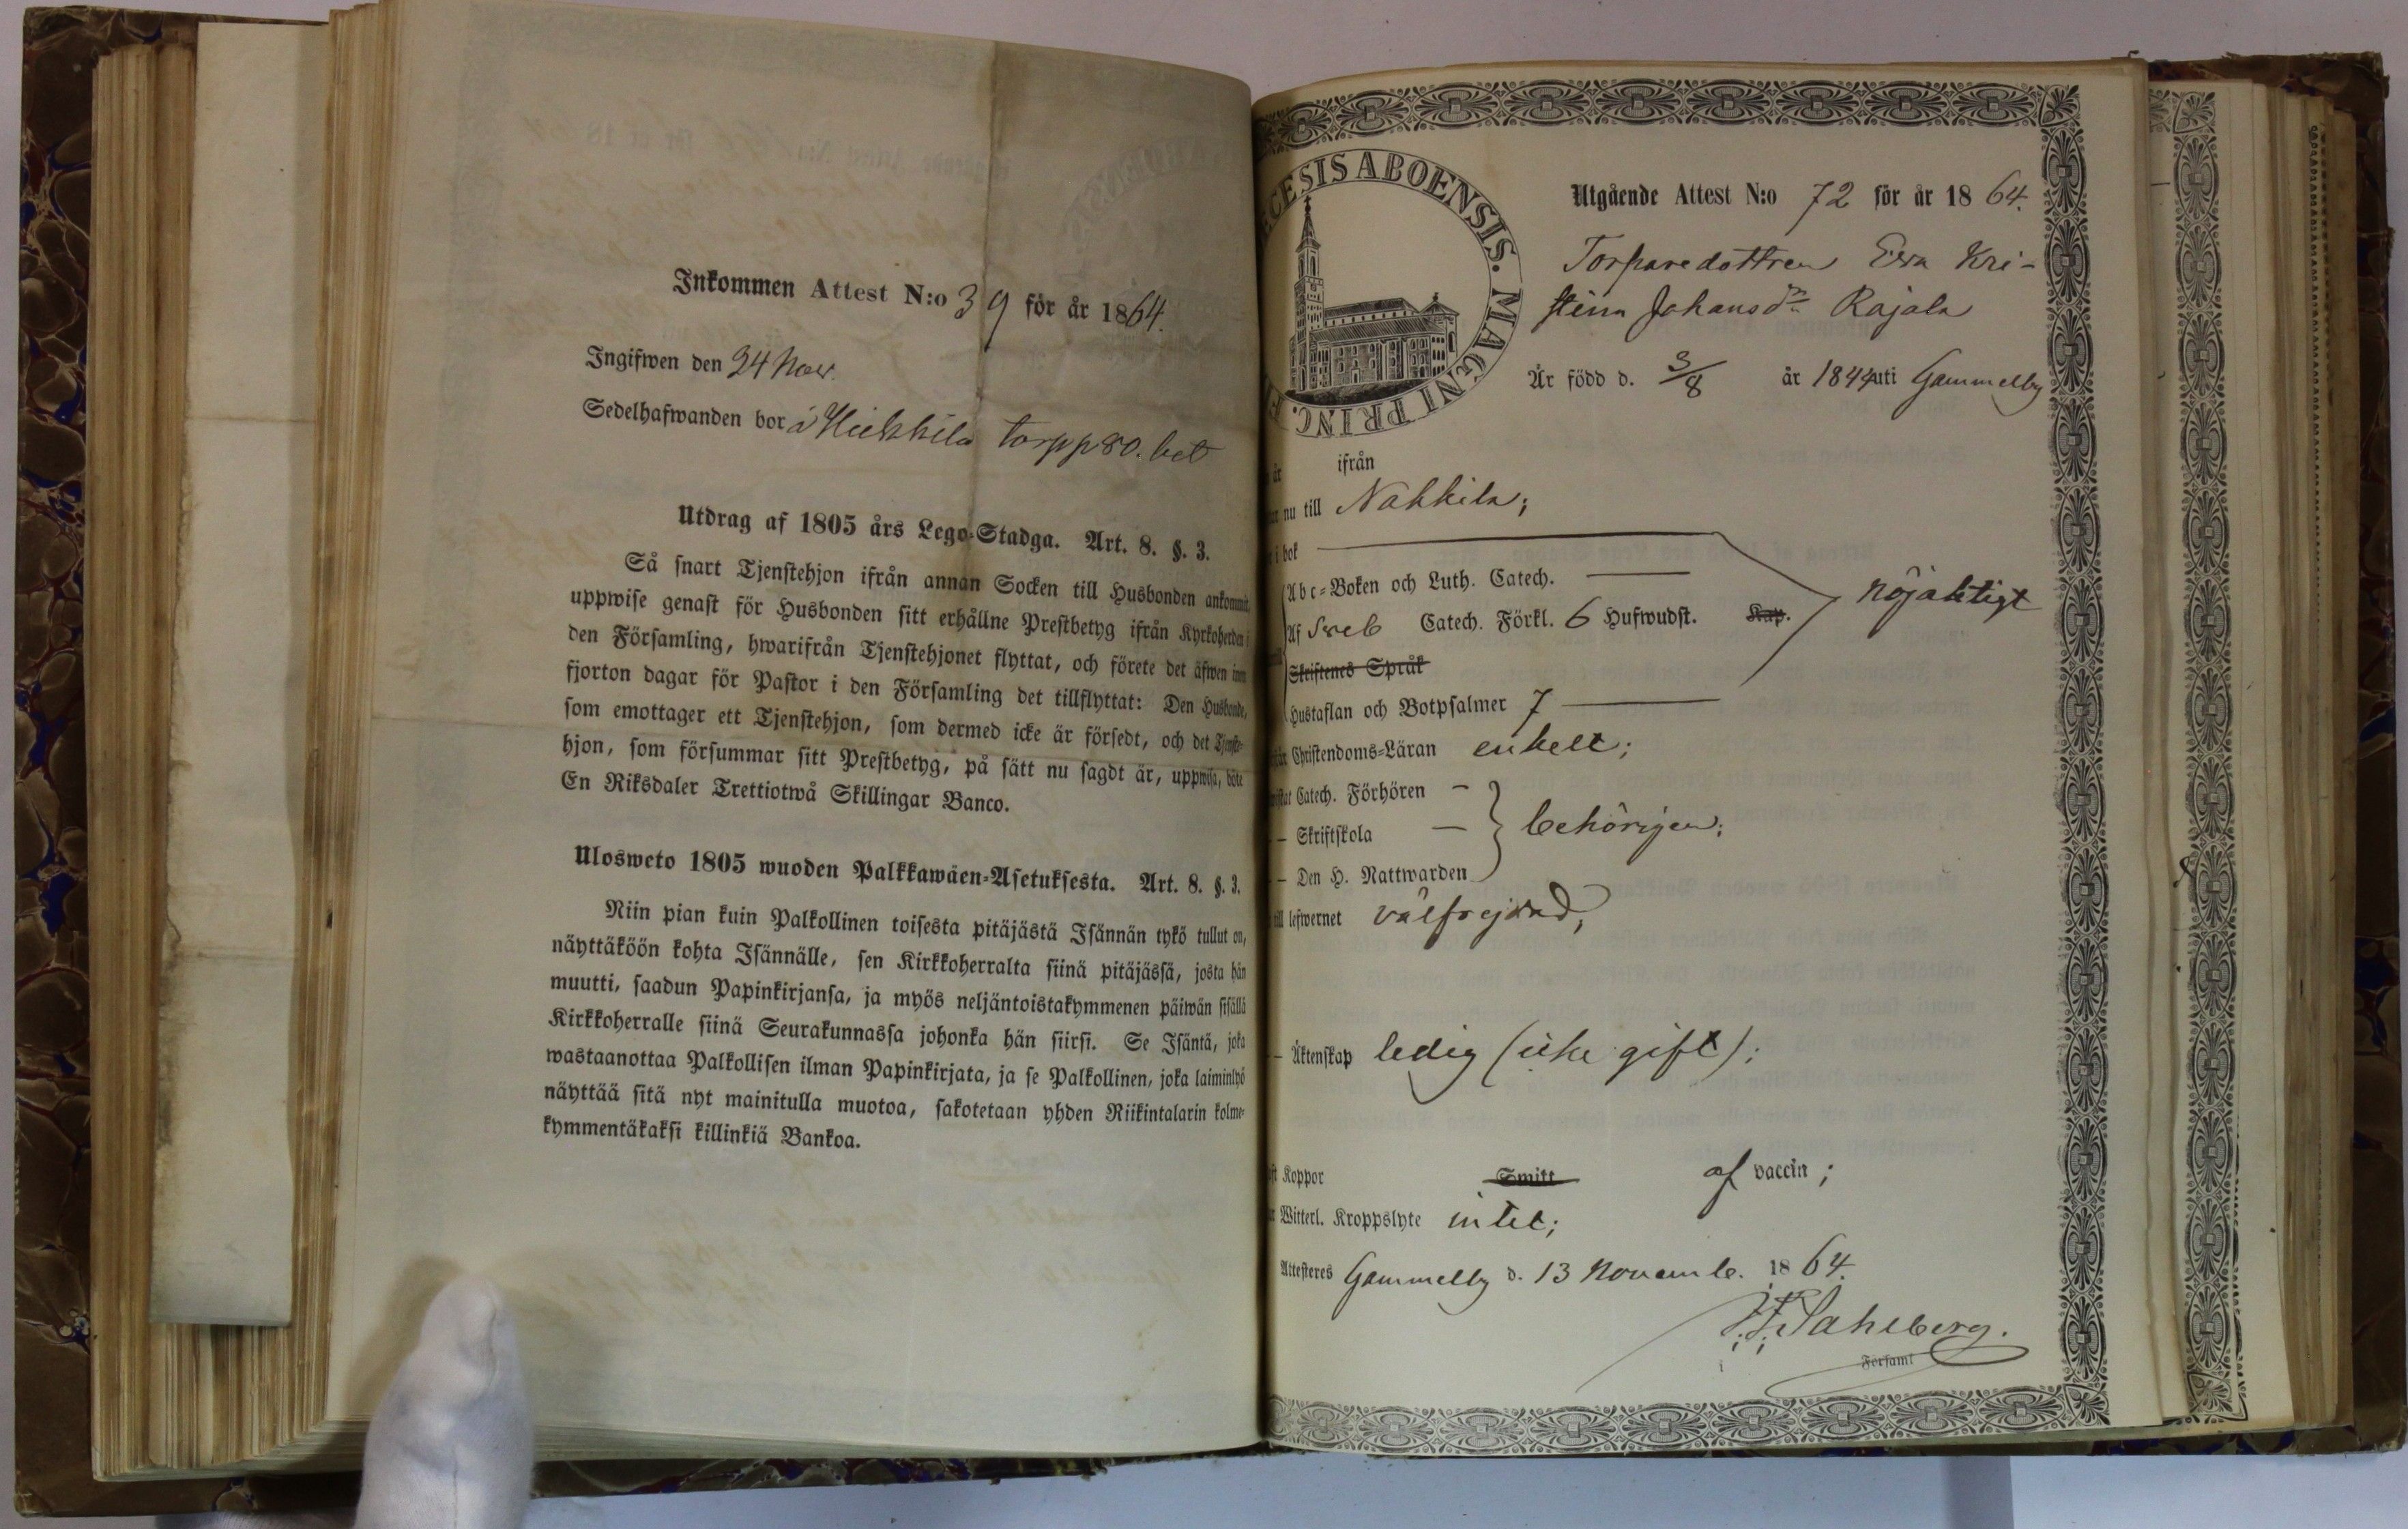 Inkommen Attest N:o 39 för år 1864.
Ingifwen den 24 Nov.
Sedelhafwanden bor å Hiekkilä torpp 80. bet
Utdrag af 1805 års Lego-Stadga. Art. 8. §. 3.
Så snart Tjenstehjon ifrån annan Socken till Husbonden ankommit,
uppwise genast för Husbonden sitt erhållne Prestbetyg ifrån Kyrkoherden i
den Församling, hwarifrån Tjenstehjonet flyttat, och förete det äfwen inom
fjorton dagar för Pastor i den Församling det tillflyttat: Den Husbonde,
som emottager ett Tjenstehjon, som dermed icke är försedt, och det Tjenste-
hjon, som försummar sitt Prestbetyg, på sätt nu sagdt är, uppwisa, böte
En Riksdaler Trettiotwå Skillingar Banco.
Ulosweto 1805 wuoden Palkkawäen-Asetuksesta. Art. 8. §. 3.
Niin pian kuin Palkollinen toisesta pitäjästä Isännän tykö tullut on,
näyttäköön kohta Isännälle, sen Kirkkoherralta siinä pitäjässä, josta hän
muutti, saadun Papinkirjansa, ja myös neljäntoistakymmenen päiwän sisällä
Kirkkoherralle siinä Seurakunnassa johonka hän siirsi. Se Isäntä, joka
wastaanottaa Palkollisen ilman Papinkirjata, ja se Palkollinen, joka laiminlyö
näyttää sitä nyt mainitulla muotoa, sakotetaan yhden Riikintalarin kolme-
kymmentäkaksi killinkiä Bankoa.
ECESIS ABOENSIS. MAGNI PRINC. F
Utgående Attest N:o 72 för år 1864.
Torparedottren Eva Kri-
stina Johansdr Rajala
Är född d. 3/8 år 1844 uti Gammelby
är ifrån
nu till Nakkila;
i bok
Abc-Boken och Luth. Catech.
nöjaktigt
Af Sveb Catech. Förkl. 6 Hufwudst. Kap.
Skriftenes Språk
Hustaflan och Botpsalmer 7
Christendoms-Läran enkelt;
Catech. Förhören –
– Skriftskola – behörigen;
– Den H. Nattwarden
till lefwernet välfrejdad;
– Äktenskap ledig (icke gift);
Koppor Smitt af vaccin;
Witterl. Kroppslyte intet;
Attesteres Gammelby d. 13 Novemb. 1864.
Sahlberg.
Församl